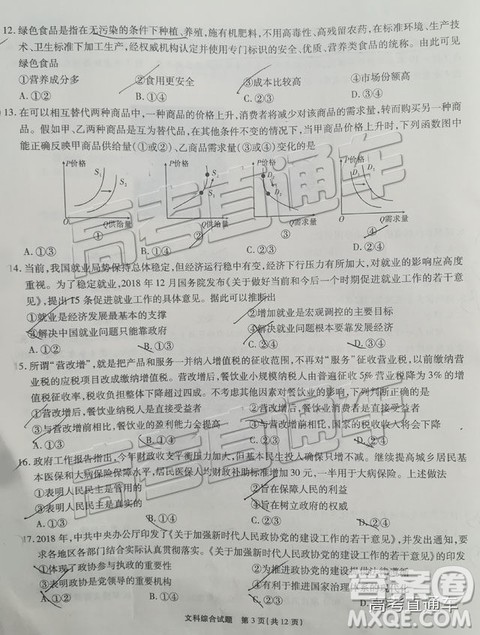 12. 绿色食品是指在无污染的条件下种植、养殖，施有机肥料，不用高毒性、高残留农药，在标准环境、生产技
术、卫生标准下加工生产，经权威机构认定并使用专门标识的安全、优质、营养类食品的统称。由此可见
绿色食品
①营养成分多 ②食用更安全 ③成本比较高 ④市场份额高
A. ①② B. ①④ C. ②③ D. ③④
13. 在可以相互替代两种商品中，一种商品的价格上升，消费者将减少对该商品的需求量，转而
商品。假如甲、乙两种商品是互为替代品，在不考虑其他因素时，当甲商品价格上升时，下列函数图中
能正确反映甲商品供给量(①或②)、乙商品需求量(③或④)变化的是
P价格 P价格 P价格 P价格
S₁ S₂ S₁ D₁ D₂
O 供给量 O 供给量 O 需求量 O 需求量
① ② ③ ④
A. ①③ B. ①④ C. ②③ D. ②④
14. 当前，我国就业局势保持总体稳定，但经济运行稳中有变，经济下行压力有所加大，对就业的影响应高度
重视。为了稳定就业，2018年12月国务院发布《关于做好当前和今后一个时期促进就业工作的若干意
见》，提出15条促进就业工作的具体意见。据此可以推断出
①经济发展影响就业 ②就业是民生之本
③解决中国就业问题只能靠政府 ④解决就业问题根本是发展经济
A. ①② B. ①④ C. ②③ D. ③④
15. 所谓“营改增”，就是把产品和服务一并纳入增值税的征收范围，不再对“服务”征收营业税，以前缴纳营业
税的应税项目改成缴纳增值税。营改增后，餐饮业小规模纳税人由普遍征收5%营业税降为3%的增
值税，税收负担整体下降超过四成。不考虑其他因素对餐饮业的影响，下列判断正确的是
①营改增后，餐饮业纳税人是直接受益者 ②营改增后，餐饮业的消费者是直接受益者
③与营改增前比，餐饮业的盈利能力会提高 ④与营改增前相比，国家的财政收入减少
A. ①③ B. ①④ C. ②③ D. ②④
16. 政府工作报告指出，今年财政收支平衡压力加大，但基本民生投入确保只增不减。继续提高城乡居民
基本医保和大病保险保障水平，居民医保人均财政补助标准增加30元，一半用于大病保险。上述做法
①表明人民民主是真实的 ②旨在保障人民的利益
③表明人民民主具有广泛性 ④旨在保障人民权利
A. ①② B. ①④ C. ②③ D. ③④
17. 2018年，中共中央办公厅印发了《关于加强新时代人民政协党的建设工作的若干意见》，并发出通知，要
求各地区各部门结合实际认真贯彻落实。《关于加强新时代人民政协党的建设工作的若干意见》
①体现了政协参与执政的重要性
③表明政协党的领导核心地位 ④有利于推进国家治理体系
A. ①② B. ①④
文科综合试题 第3页(共12页)
高考直通车
答案圈
高考直通车